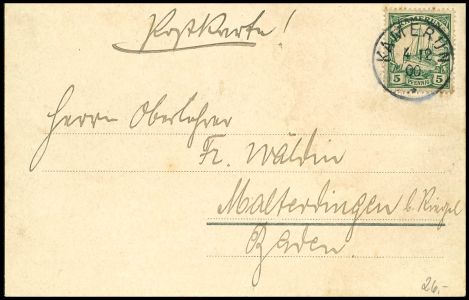 Postkarte!
KAMERUN
KAMERUN
4 12
00
5 PFENNIG 5
Herrn Oberlehrer
Fr. Wäldin
Malterdingen b. Riegel
Baden.
26.-